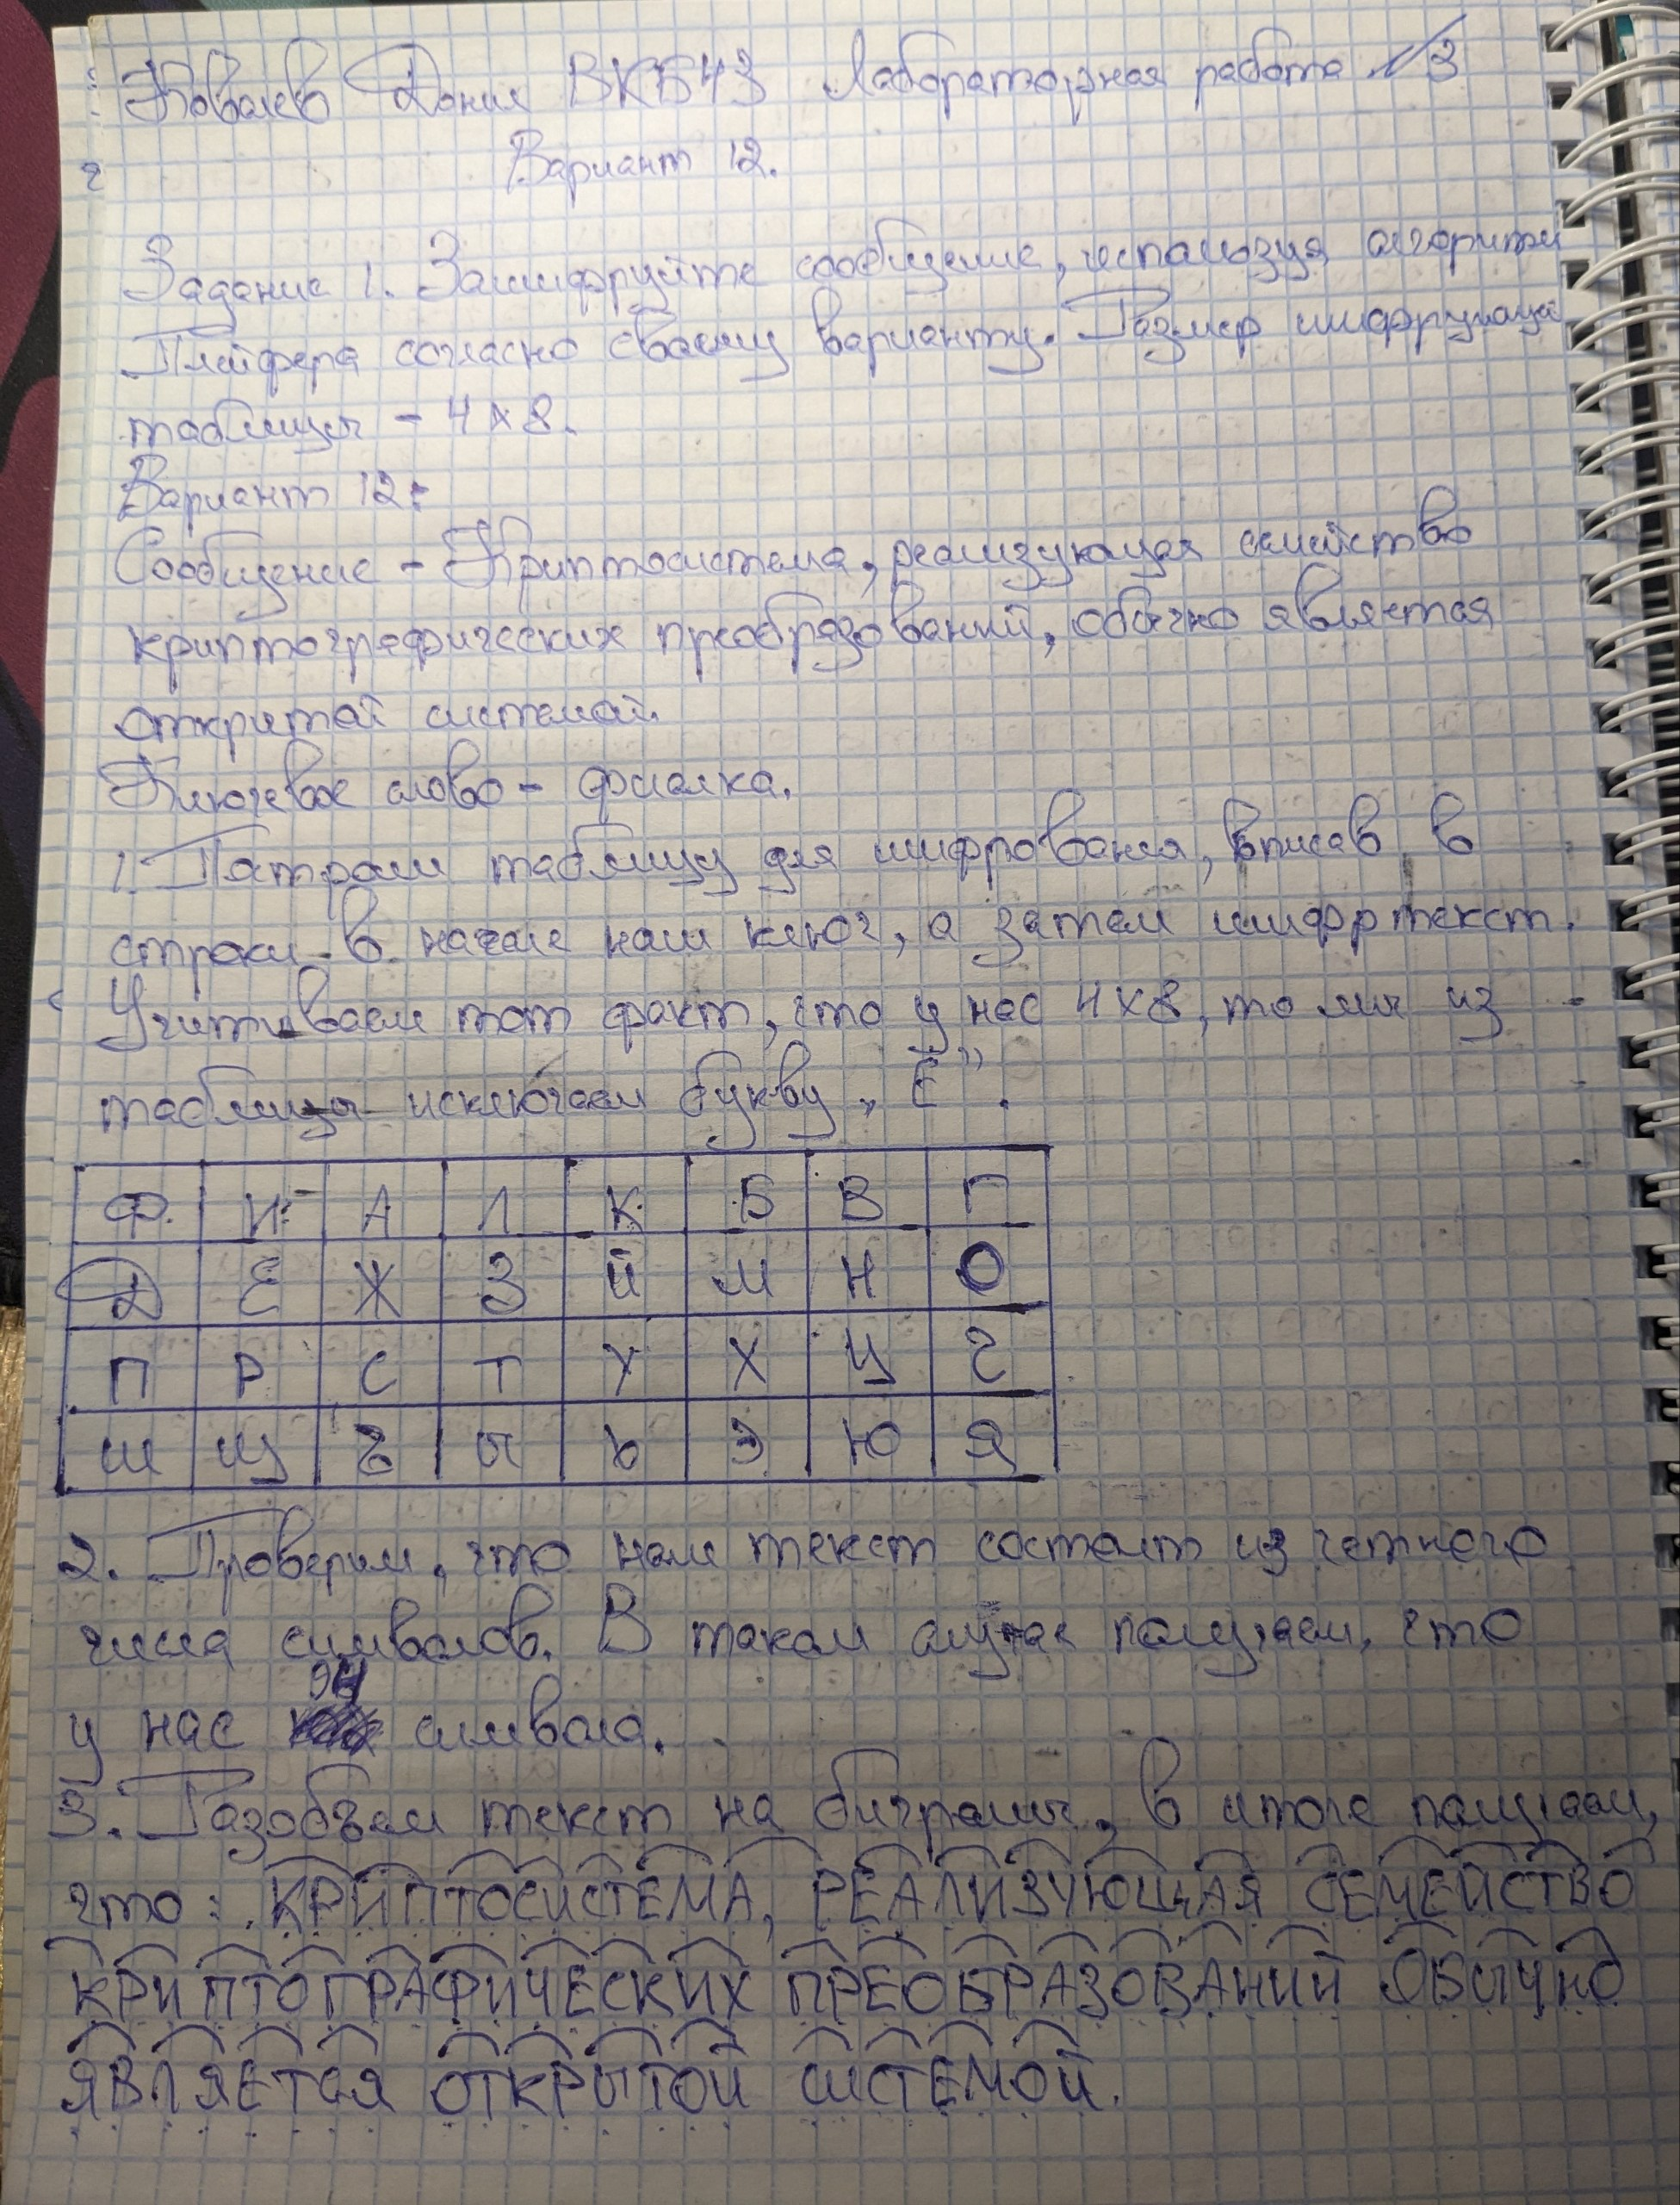 Ковалев Данил ВКБ43 Лабораторная работа №3
Вариант 12.
Задание 1. Зашифруйте сообщение, используя алгоритм
Плейфера согласно своему варианту. Размер шифрующей
таблицы - 4x8.
Вариант 12:
Сообщение - Криптосистема, реализующая семейство
криптографических преобразований, обычно является
открытой системой.
Ключевое слово - фиалка.
1. Построим таблицу для шифрования, вписав в
строки в начале наш ключ, а затем шифртекст.
Учитываем тот факт, что у нас 4x8, то мы из
таблицы исключаем букву „Ё".
Ф И А Л К Б В Г
Д Е Ж З Й М Н О
П Р С Т У Х Ц Ч
Ш Щ Ъ Ы Ь Э Ю Я
2. Проверим, что наш текст состоит из четного
числа символов. В таком случае получаем, что
у нас 94 символа.
3. Разобьем текст на биграммы, в итоге получаем,
что: КРИПТОСИСТЕМА, РЕАЛИЗУЮЩАЯ СЕМЕЙСТВО
КРИПТОГРАФИЧЕСКИХ ПРЕОБРАЗОВАНИЙ ОБЫЧНО
ЯВЛЯЕТСЯ ОТКРЫТОЙ СИСТЕМОЙ.